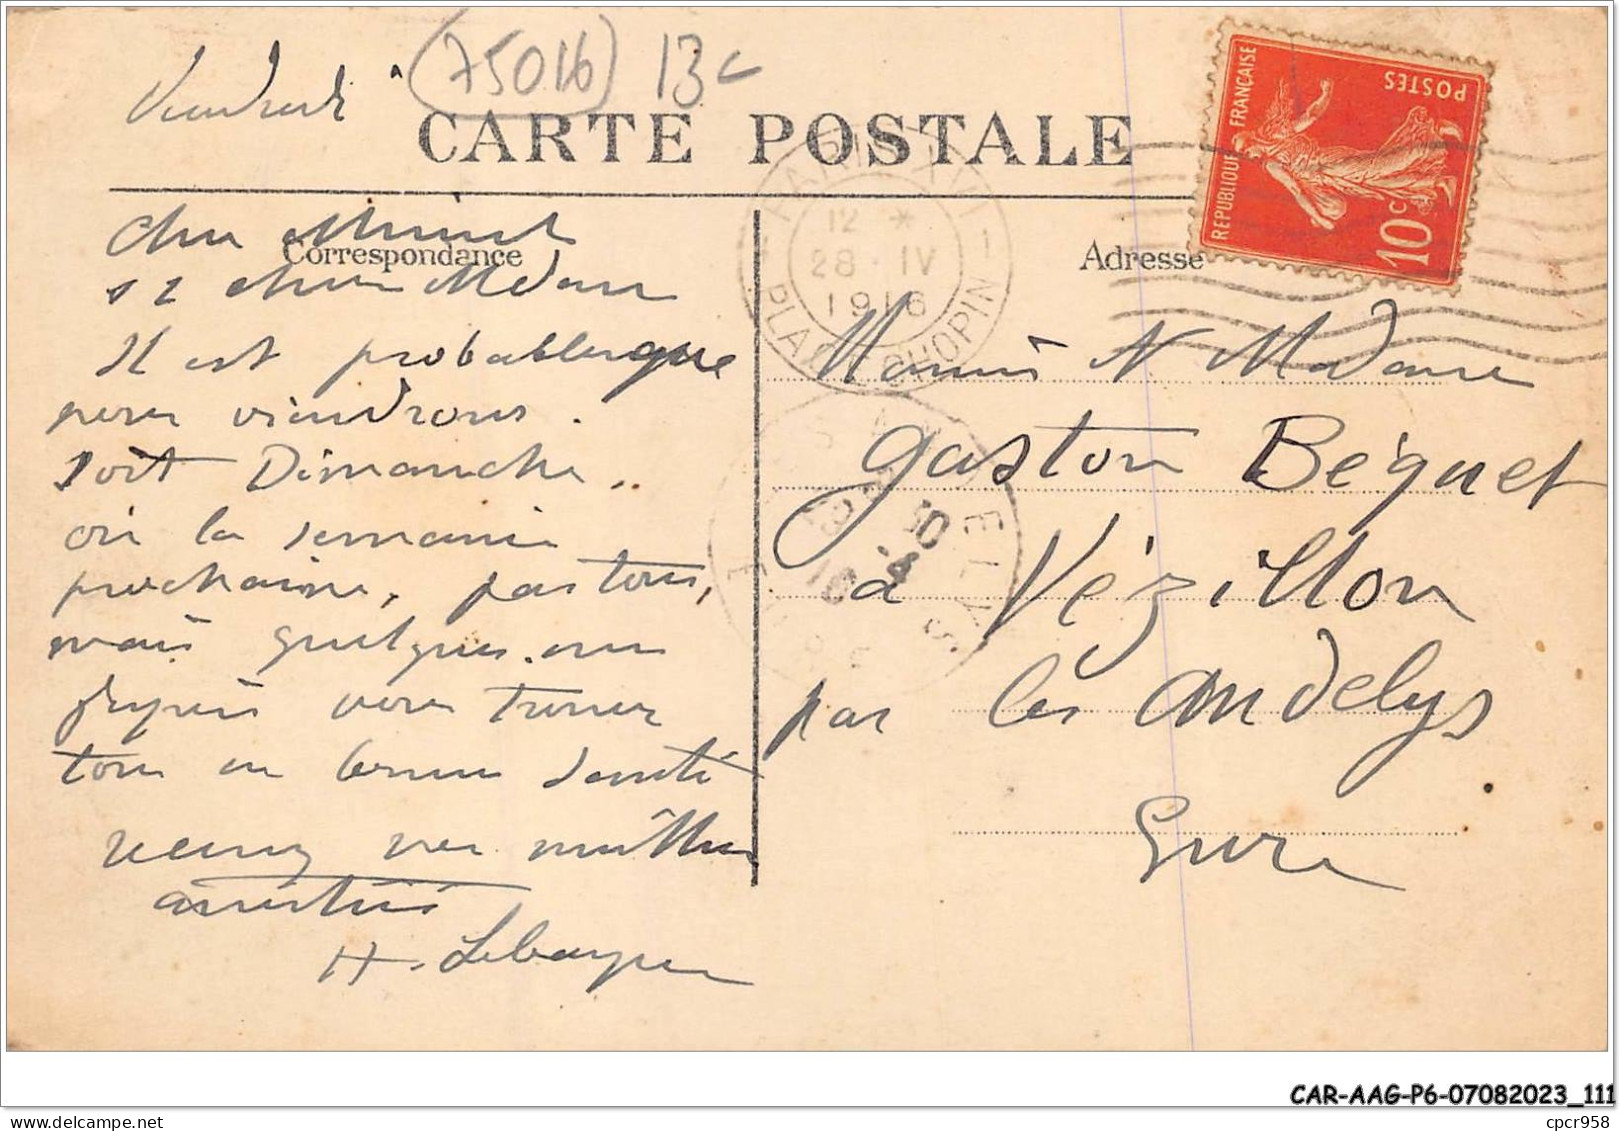 Vendredi
(75016) 13c
CARTE POSTALE
Correspondance
Adresse
REPUBLIQUE FRANÇAISE
POSTES
10c
PARIS XVI
12 *
28 · IV
1916
PLACE CHOPIN
LES ANDELYS
EURE
30
-4
16
Cher
et chère Madame
Il est probable que
nous viendrons.
soit Dimanche.
ou la semaine
prochaine, pas tous,
mais quelques uns
vous trouver
tous en bonne santé
recevez nos meilleures
amitiés
H.
Monsieur & Madame
Gaston Béquet
à Vézillon
par les Andelys
Eure
CAR-AAG-P6-07082023_111
cpcr958